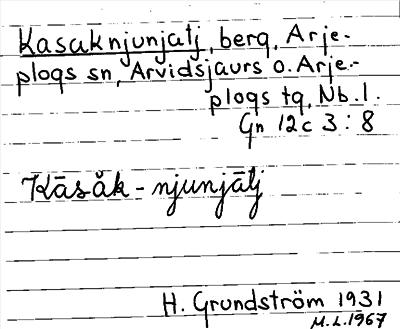 Kasaknjunjatj, berg, Arje-
plogs sn, Arvidsjaurs o. Arje-
plogs tg, Nb. l.
Gn 12c 3:8
Kāsåk-njunjātj
H. Grundström 1931
M.L. 1967